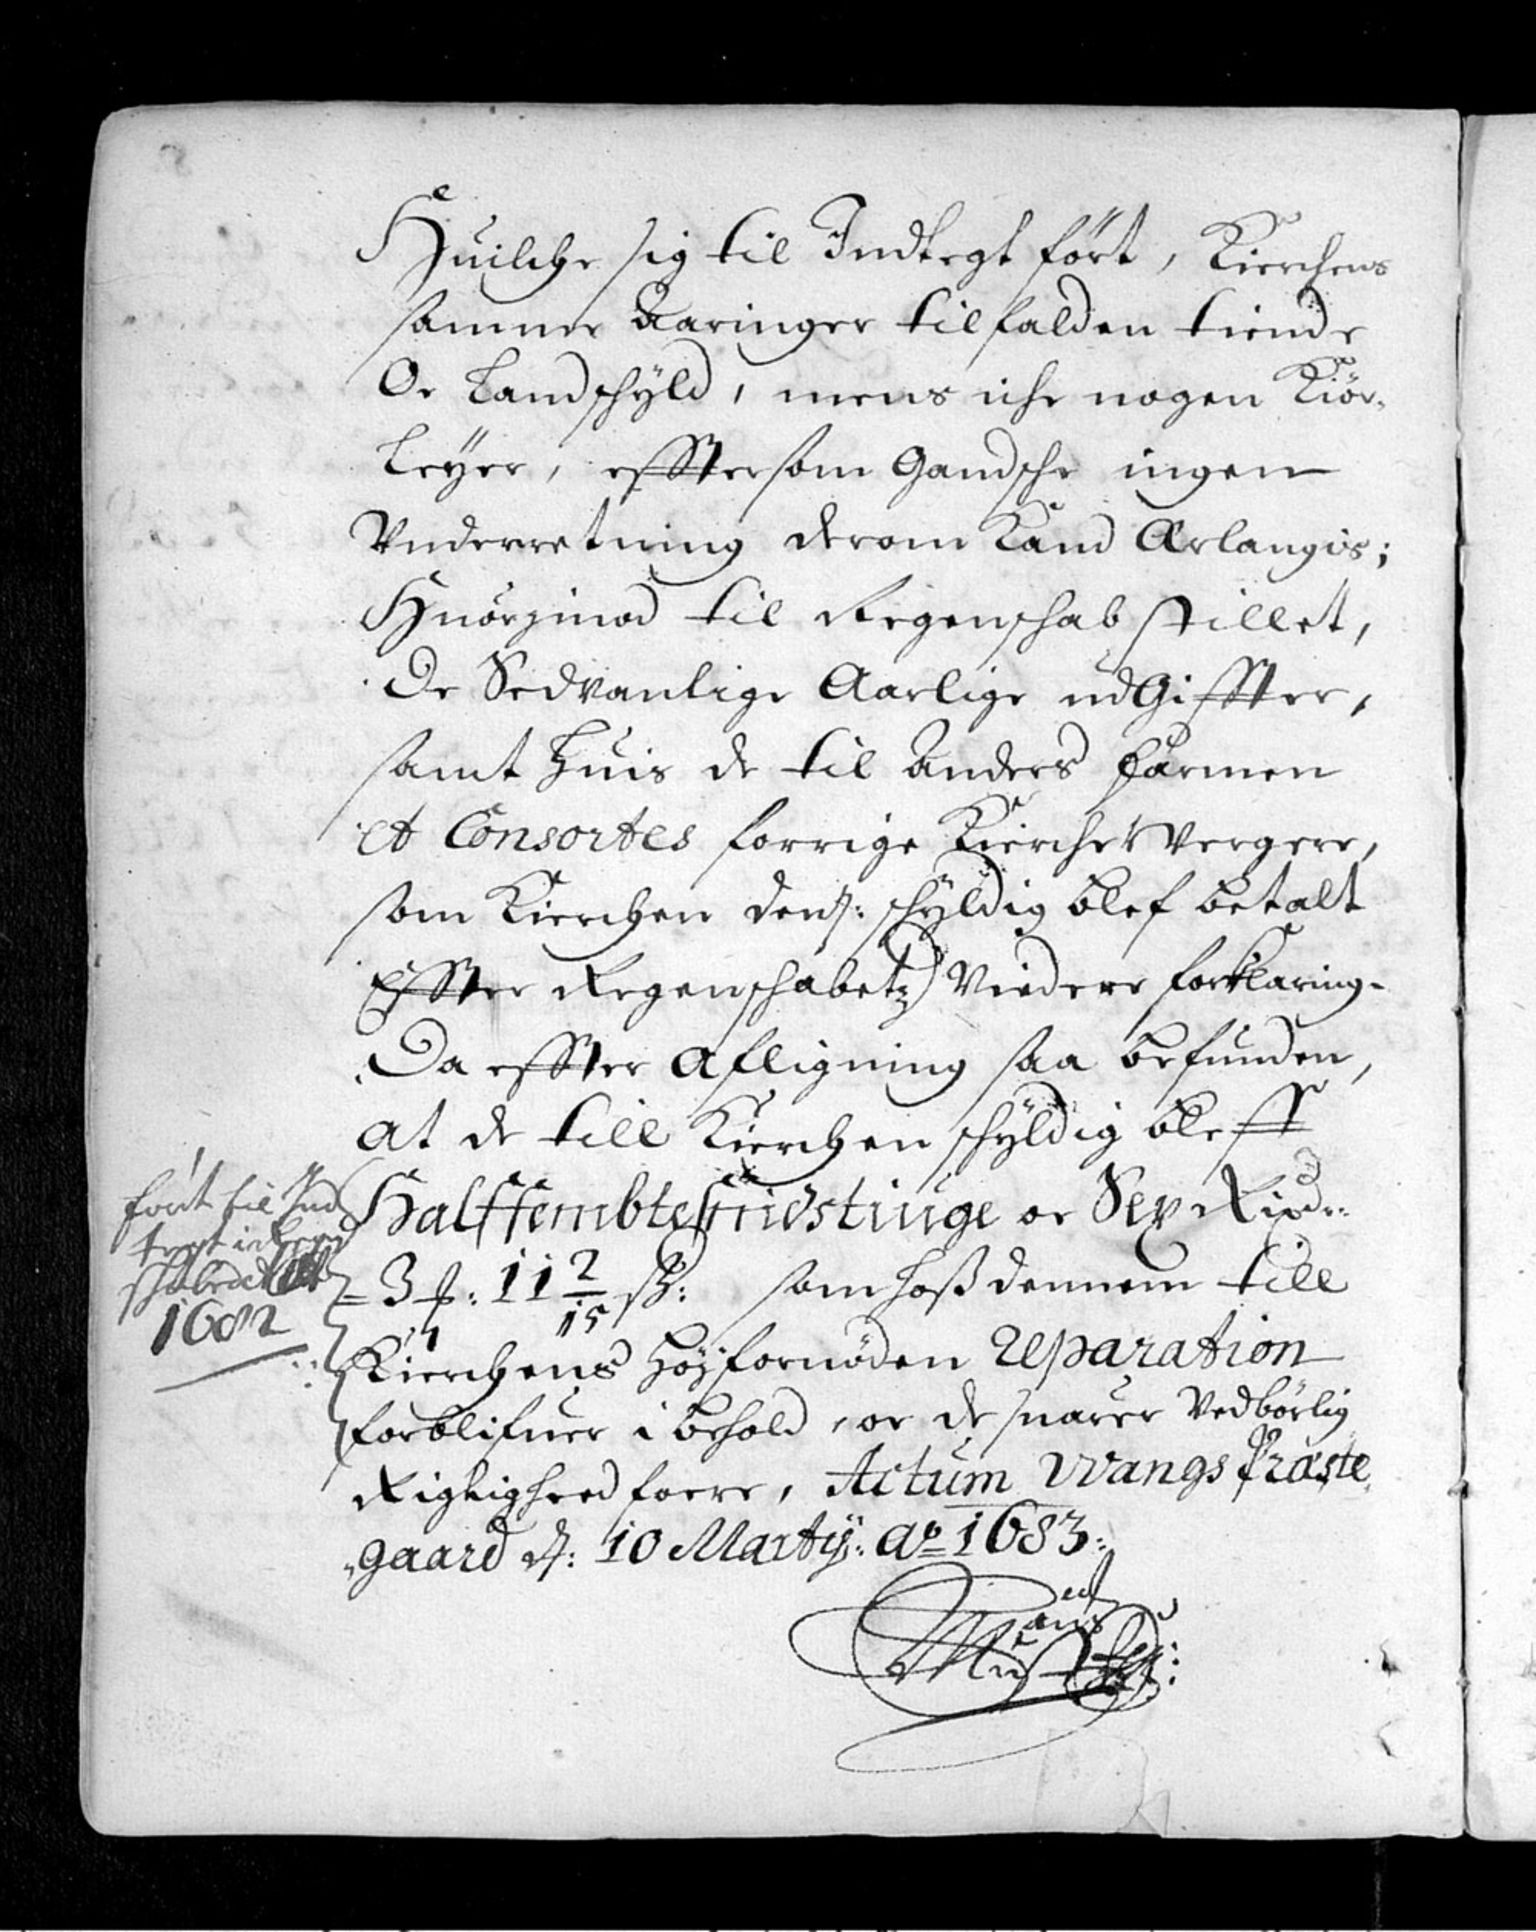 Huilche sig til Indtegt ført, Kierchens
samme Aaringer tilfalden tiende
Oc Landschyld, mens iche nogen Kiör-
Leyer, effttersom Gandsche ingen
Vnderretning derom Kand Ærlangis;
Huorjmod til Regenschab stillet,
De Sedvanlige Aarlige udGiffter,
samt huis de til Anders farmen
et Consortes forrige Kierche Vergere,
som Kierchen dens: schÿldig blef betalt
Effter Regenschabetz Viedere forklaring.
Da effter Afligning saa befunden,
at de till Kierchen schÿldig bleff
Halffembtesindstiuge oc Sex Rixdr:
3 ƒ: 11 2/15 sz: som hoß dennem till
Kierchens höÿfornöden Reparation
forblifuer i behold, oc de suarer Vedbörlig
Rigtigheed foere, Actum Vangs Præste
gaard d: 10 Martÿ: Aº 1683:
fört til Ind
tegt i Regen
schabed
1682